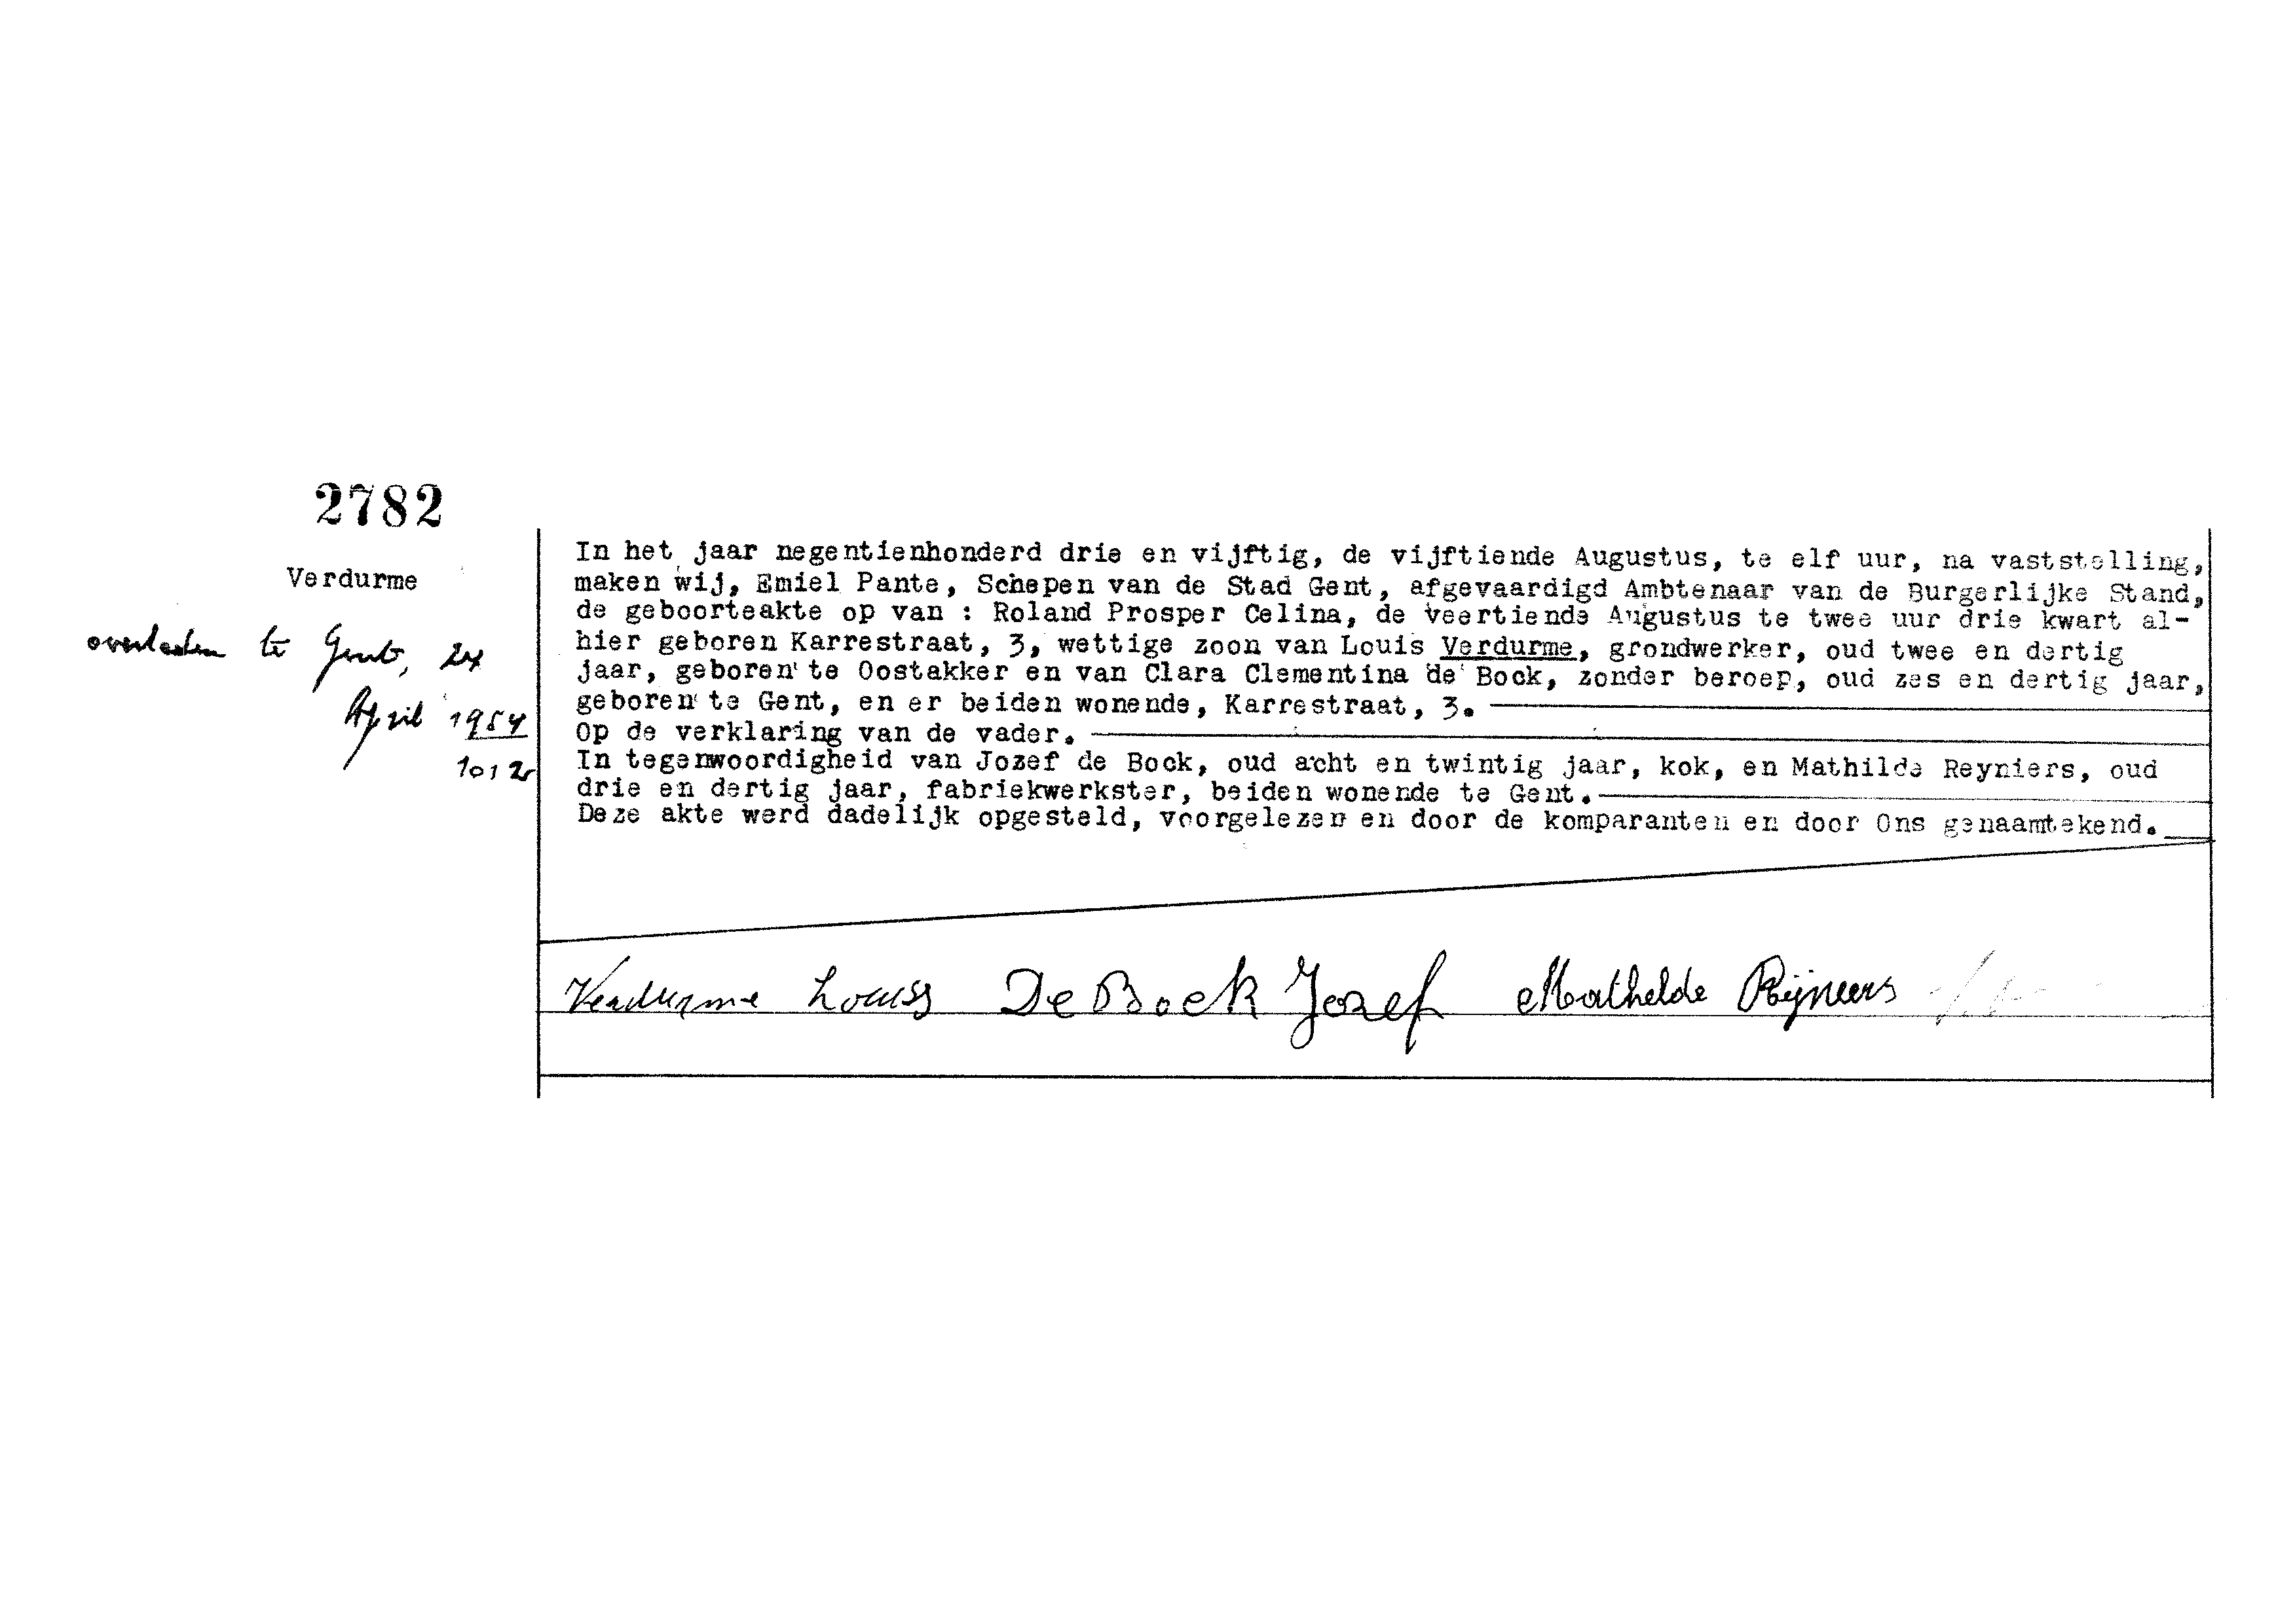 2782
Verdurme
overleden te Gent, 24
April 1954
1012
In het jaar negentienhonderd drie en vijftig, de vijftiende Augustus, te elf uur, na vaststelling,
maken wij, Emiel Pante, Schepen van de Stad Gent, afgevaardigd Ambtenaar van de Burgerlijke Stand,
de geboorteakte op van : Roland Prosper Celina, de veertiende Augustus te twee uur drie kwart al-
hier geboren Karrestraat, 3, wettige zoon van Louis Verdurme, grondwerker, oud twee en dertig
jaar, geboren te Oostakker en van Clara Clementina de Bock, zonder beroep, oud zes en dertig jaar,
geboren te Gent, en er beiden wonende, Karrestraat, 3.
Op de verklaring van de vader.
In tegenwoordigheid van Jozef de Bock, oud acht en twintig jaar, kok, en Mathilde Reyniers, oud
drie en dertig jaar, fabriekwerkster, beiden wonende te Gent.
Deze akte werd dadelijk opgesteld, voorgelezen en door de komparanten en door Ons genaamtekend.
Verdurme Louis De Bock Jozef Mathelde Rijneers